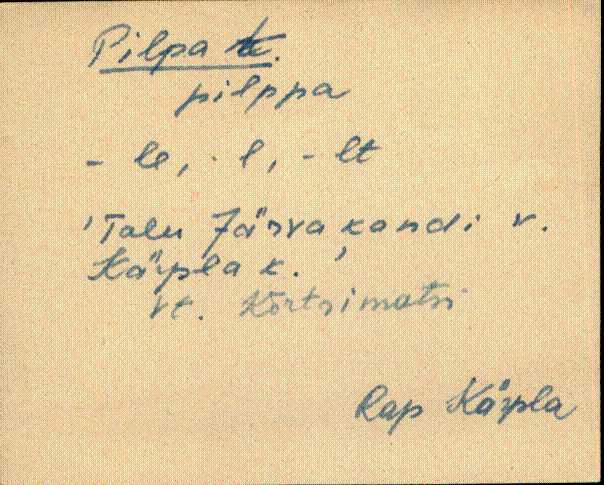 Pilpa t.
pilppa
- le, - l, - lt
'Talu Järvakandi v.
Kärpla k.'
vt. Kõrtsimatsi
Rap Kärpla